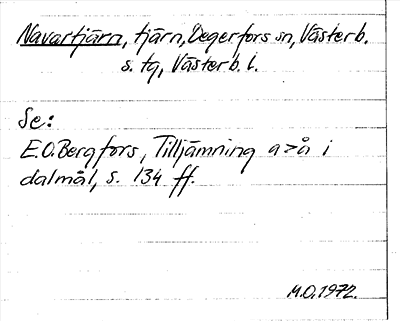 Navartjärn, tjärn, Degerfors sn, Västerb.
s. tg, Västerb. l.
Se:
E.O. Bergfors, Tilljämning a>å i
dalmål, s. 134 ff.
M.O. 1972.